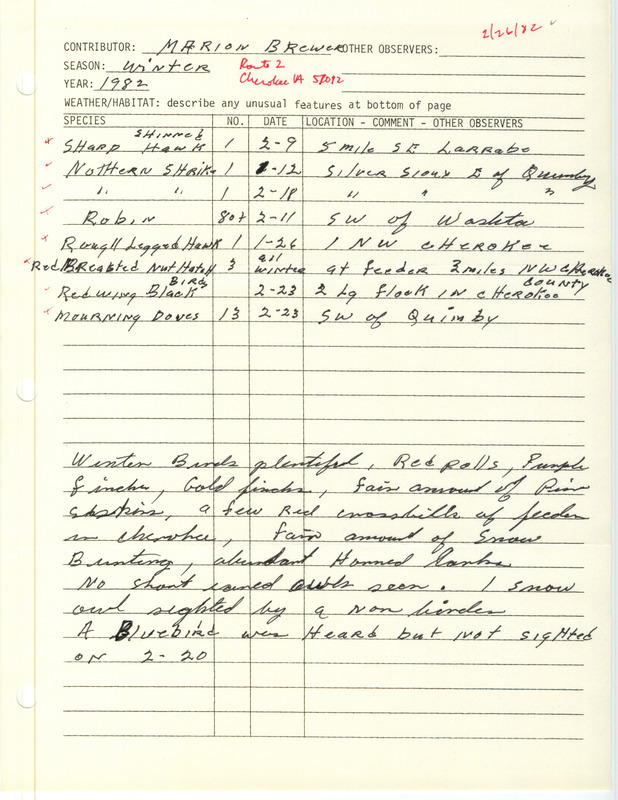 2/26/82
CONTRIBUTOR: MARION BREWER OTHER OBSERVERS:
SEASON: WINTER Route 2
YEAR: 1982 Cherokee IA 51012
WEATHER/HABITAT: describe any unusual features at bottom of page
SPECIES NO. DATE LOCATION - COMMENT - OTHER OBSERVERS
SHARP SHINNED HAWK 1 2-9 5 mile SE LARRABE
NOTHERN SHRIKE 1 1-12 SILVER SIOUX E of Quimby
" " 1 2-18 " " "
ROBIN 80+ 2-11 SW of WASHTA
Rough Legged HAWK 1 1-26 1 NW CHEROKEE
Red BREASTED NUT HATCH 3 all winter at feeder 3 miles NW CHEROKEE COUNTY
Red Wing Black BIRD 2-23 2 Lg flock IN CHEROKEE
MOURNING DOVES 13 2-23 SW of QUIMBY
Winter Birds plentiful, Red polls, Purple
finches, Gold finchs, fair amount of Pine
Siskins, a few Red crossbills at feeder
in cherokee, fair amount of Snow
Bunting, abundant Horned Larks
No short eared owls seen. 1 snow
owl sighted by a Non birder
A Bluebird was Heard but not sighted
ON 2-20